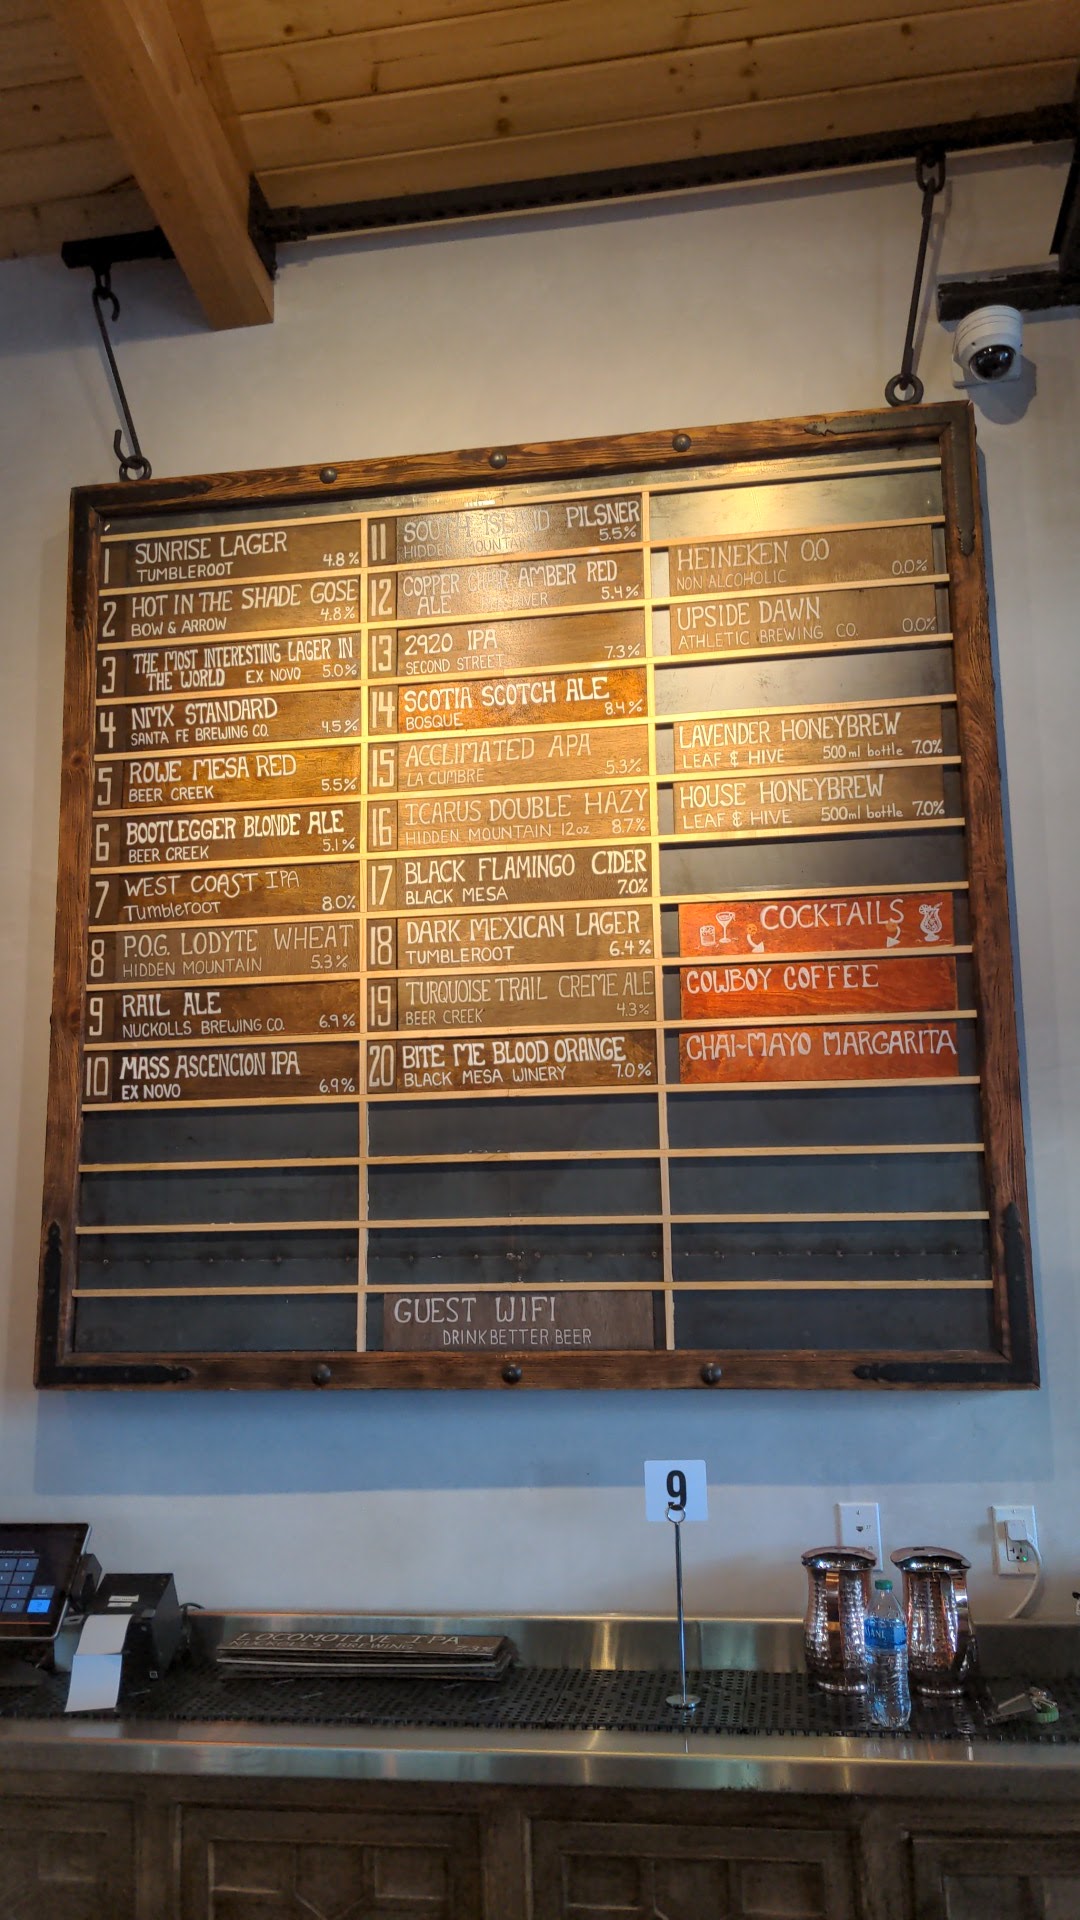 1 SUNRISE LAGER
TUMBLEROOT 4.8%
2 HOT IN THE SHADE GOSE
BOW & ARROW 4.8%
3 THE MOST INTERESTING LAGER IN
THE WORLD EX NOVO 5.0%
4 NMX STANDARD
SANTA FE BREWING CO. 4.5%
5 ROWE MESA RED
BEER CREEK 5.5%
6 BOOTLEGGER BLONDE ALE
BEER CREEK 5.1%
7 WEST COAST IPA
TUMBLEROOT 8.0%
8 P.O.G. LODYTE WHEAT
HIDDEN MOUNTAIN 5.3%
9 RAIL ALE
NUCKOLLS BREWING CO. 6.9%
10 MASS ASCENCION IPA
EX NOVO 6.9%
11 SOUTH ISLAND PILSNER
HIDDEN MOUNTAIN 5.5%
12 COPPER AMBER RED
ALE 5.4%
13 2920 IPA
SECOND STREET 7.3%
14 SCOTIA SCOTCH ALE
BOSQUE 8.4%
15 ACCLIMATED APA
LA CUMBRE 5.3%
16 ICARUS DOUBLE HAZY
HIDDEN MOUNTAIN 12oz 8.7%
17 BLACK FLAMINGO CIDER
BLACK MESA 7.0%
18 DARK MEXICAN LAGER
TUMBLEROOT 6.4%
19 TURQUOISE TRAIL CREME ALE
BEER CREEK 4.3%
20 BITE ME BLOOD ORANGE
BLACK MESA WINERY 7.0%
HEINEKEN 0.0
NON ALCOHOLIC 0.0%
UPSIDE DAWN
ATHLETIC BREWING CO. 0.0%
LAVENDER HONEYBREW
LEAF & HIVE 500ml bottle 7.0%
HOUSE HONEYBREW
LEAF & HIVE 500ml bottle 7.0%
COCKTAILS
COWBOY COFFEE
CHAI-MAYO MARGARITA
GUEST WIFI
DRINKBETTERBEER
9
LOCOMOTIVE IPA
NUCKOLLS BREWING 7.3%